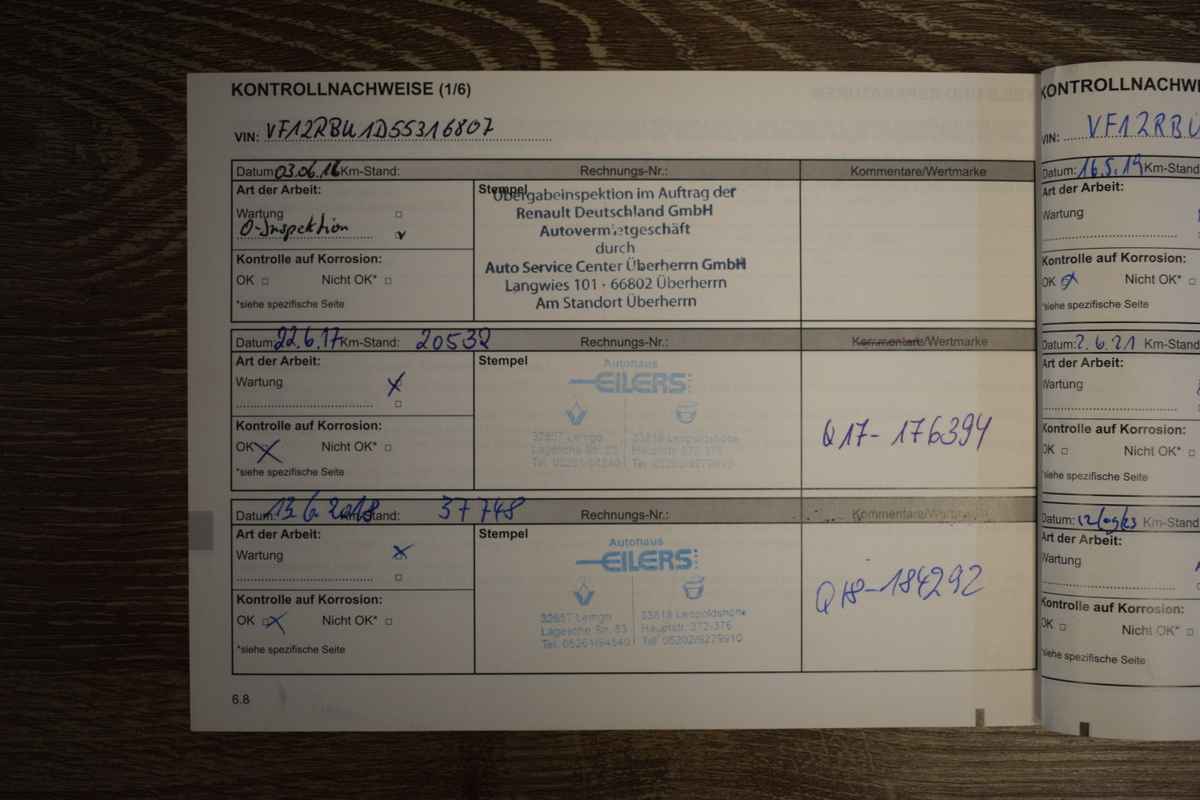 KONTROLLNACHWEISE (1/6)
VIN: VF12RBU1D55316807
Datum: 03.06.16 Km-Stand: Rechnungs-Nr.: Kommentare/Wertmarke
Art der Arbeit:
Wartung
0-Inspektion
Kontrolle auf Korrosion:
OK Nicht OK*
*siehe spezifische Seite
Stempel
Übergabeinspektion im Auftrag der
Renault Deutschland GmbH
Autovermietgeschäft
durch
Auto Service Center Überherrn GmbH
Langwies 101 · 66802 Überherrn
Am Standort Überherrn
Datum: 22.6.17 Km-Stand: 20532 Rechnungs-Nr.: Kommentare/Wertmarke
Art der Arbeit:
Wartung
Kontrolle auf Korrosion:
OK Nicht OK*
*siehe spezifische Seite
Stempel
Autohaus
EILERS
32657 Lemgo 33818 Leopoldshöhe
Lagesche Str. 53 Hauptstr. 272-376
Tel. 05261/94540 Tel. 05202/9279910
Q17-176394
Datum: 13.6.2018 Km-Stand: 37748 Rechnungs-Nr.: Kommentare/Wertmarke
Art der Arbeit:
Wartung
Kontrolle auf Korrosion:
OK Nicht OK*
*siehe spezifische Seite
Stempel
Autohaus
EILERS
32657 Lemgo 33818 Leopoldshöhe
Lagesche Str. 53 Hauptstr. 272-376
Tel. 05261/94540 Tel. 05202/9279910
Q18-184292
6.8
KONTROLLNACHW
VIN: VF12RBU
Datum: 16.5.19 Km-Stand
Art der Arbeit:
Wartung
Kontrolle auf Korrosion:
OK Nicht OK*
*siehe spezifische Seite
Datum: 2.6.21 Km-Stand
Art der Arbeit:
Wartung
Kontrolle auf Korrosion:
OK Nicht OK*
*siehe spezifische Seite
Datum: 12/09/23 Km-Stand
Art der Arbeit:
Wartung
Kontrolle auf Korrosion:
OK Nicht OK*
*siehe spezifische Seite